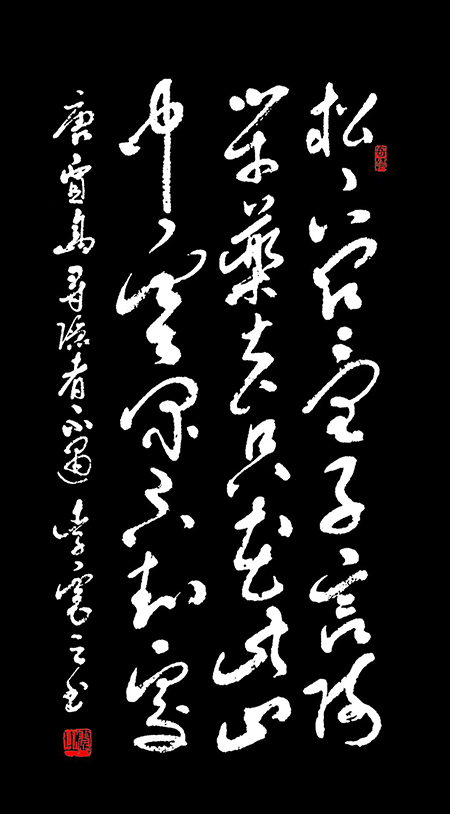 松下問童子言師
采藥去只在此山
中雲深不知處
唐賈島尋隱者不遇 李之书